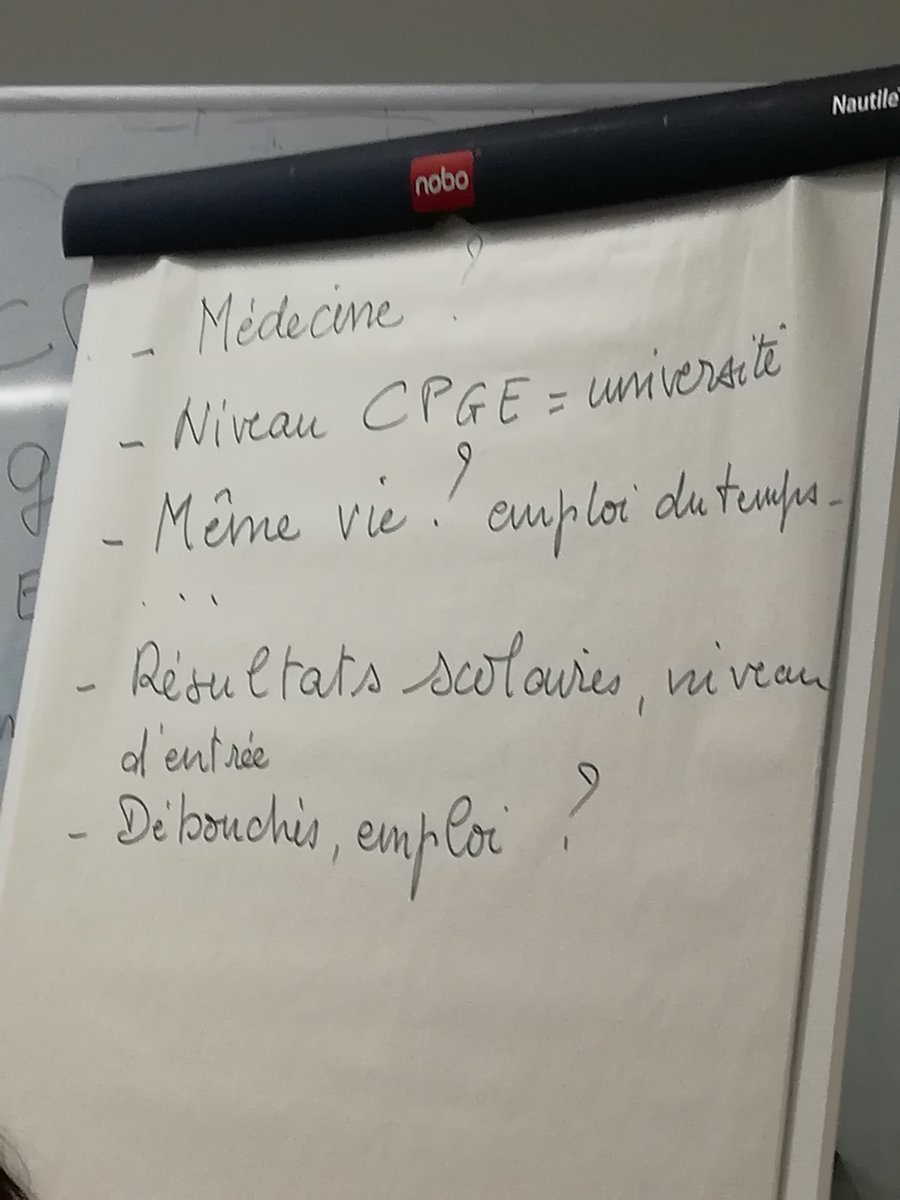 Nautile
nobo
- Médecine ?
- Niveau CPGE = université
- Même vie ? emploi du temps -
...
- Résultats scolaires, niveau
d'entrée
- Débouchés, emploi ?